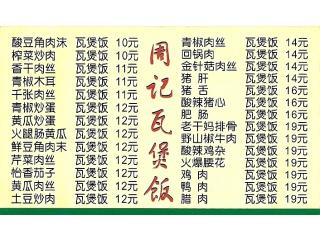 酸豆角肉沫 瓦煲饭 10元
榨菜炒肉 瓦煲饭 10元
香干肉丝 瓦煲饭 11元
青椒木耳 瓦煲饭 11元
千张肉丝 瓦煲饭 11元
青椒炒蛋 瓦煲饭 12元
黄瓜炒蛋 瓦煲饭 12元
火腿肠黄瓜 瓦煲饭 12元
鲜豆角肉末 瓦煲饭 12元
芹菜肉丝 瓦煲饭 12元
怡香茄子 瓦煲饭 12元
黄瓜肉丝 瓦煲饭 12元
土豆炒肉 瓦煲饭 12元
周记瓦煲饭
青椒肉丝 瓦煲饭 14元
回锅肉 瓦煲饭 14元
金针菇肉丝 瓦煲饭 14元
猪肝 瓦煲饭 14元
猪舌 瓦煲饭 16元
酸辣猪心 瓦煲饭 16元
肥肠 瓦煲饭 16元
老干妈排骨 瓦煲饭 19元
野山椒牛肉 瓦煲饭 19元
酸辣鸡杂 瓦煲饭 19元
火爆腰花 瓦煲饭 19元
鸡肉 瓦煲饭 19元
鸭肉 瓦煲饭 19元
腊肉 瓦煲饭 19元